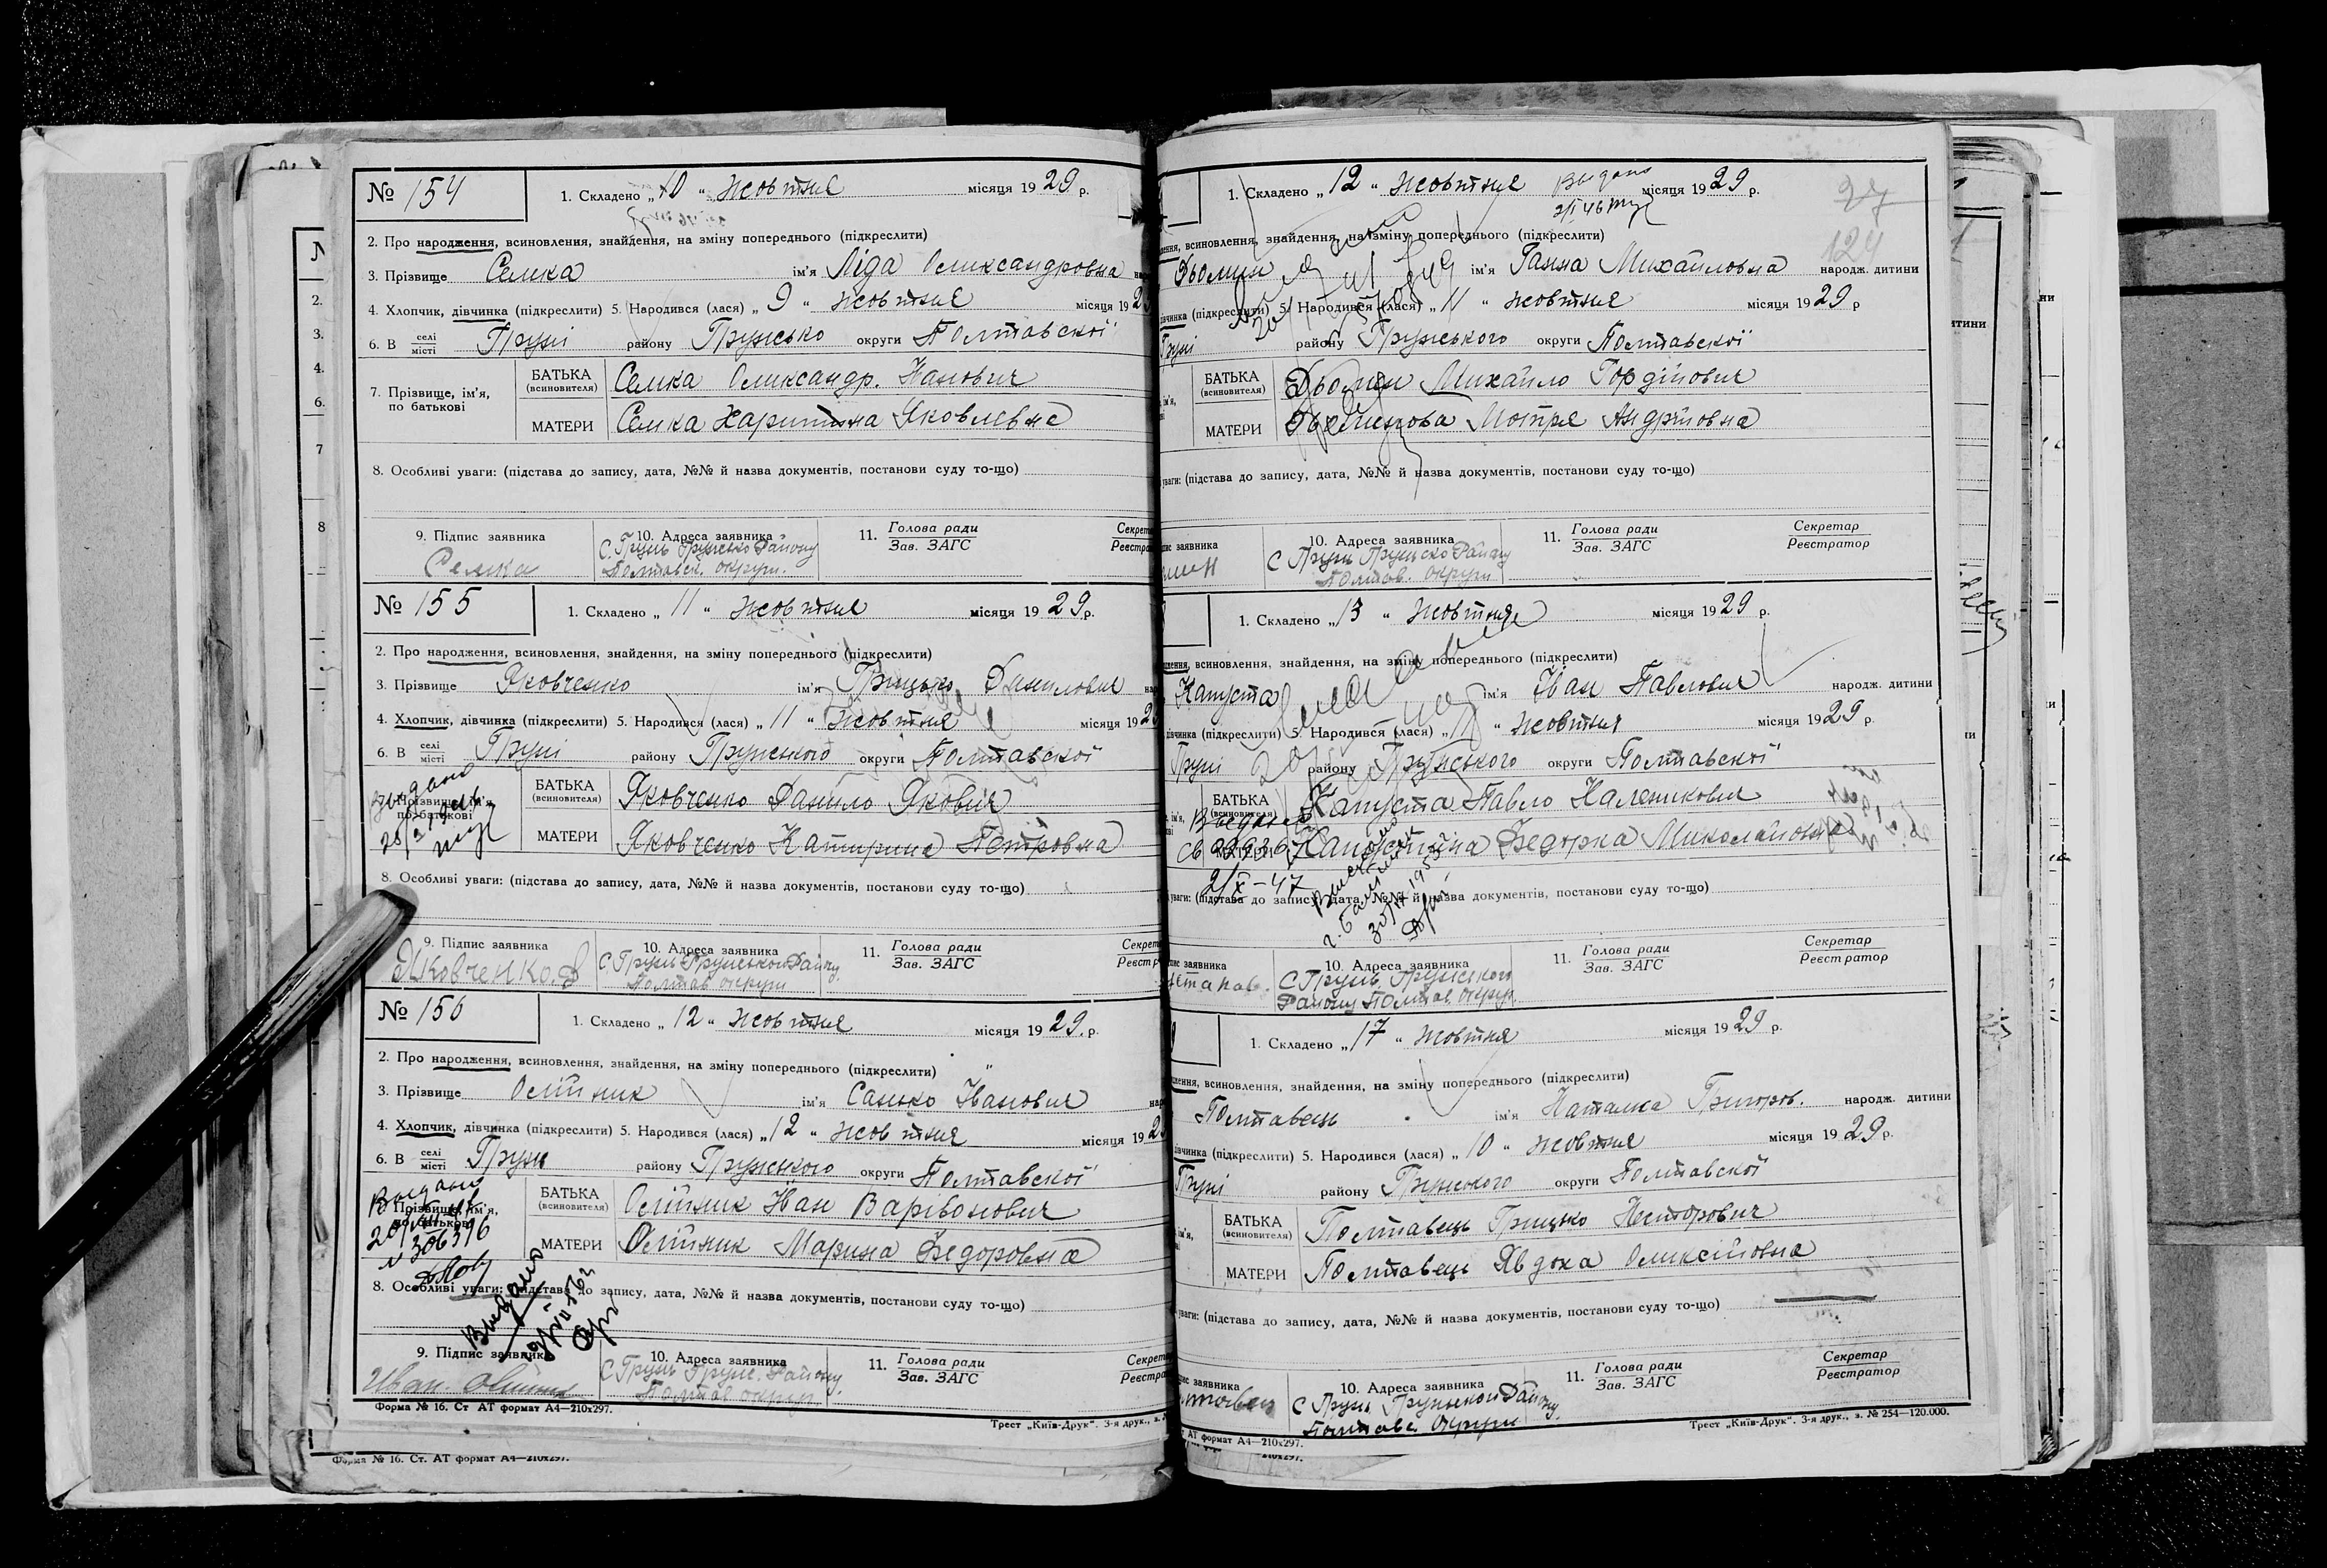 № 154
1. Складено „10“ жовтня місяця 1929 р.
2. Про народження, всиновлення, знайдення, на зміну попереднього (підкреслити)
3. Прізвище Семка ім'я Ліда Олександровна
4. Хлопчик, дівчинка (підкреслити) 5. Народився (лася) „9“ жовтня місяця 192
6. В селі місті Груні району Грунсько округи Полтавської
7. Прізвище, ім'я, по батькові
БАТЬКА (всиновителя) Семка Олександр. Іванович
МАТЕРИ Семка Харитина Яковлевна
8. Особливі уваги: (підстава до запису, дата, №№ й назва документів, постанови суду то-що)
9. Підпис заявника
Семка
10. Адреса заявника
С. Грунь Грунсько Району
Полтавск. округи.
11. Голова ради
Зав. ЗАГС
№ 155
1. Складено „11“ жовтня місяця 1929 р.
2. Про народження, всиновлення, знайдення, на зміну попереднього (підкреслити)
3. Прізвище Яковченко ім'я Грицько Данилович
4. Хлопчик, дівчинка (підкреслити) 5. Народився (лася) „11“ жовтня місяця 192
6. В селі місті Груні району Грунського округи Полтавської
Прізвище, ім'я, по батькові
БАТЬКА (всиновителя) Яковченко Данило Якович
МАТЕРИ Яковченко Катирина Петровна
8. Особливі уваги: (підстава до запису, дата, №№ й назва документів, постанови суду то-що)
9. Підпис заявника
Яковченко. Д
10. Адреса заявника
С. Грунь Грунського Району
Полтав округи
11. Голова ради
Зав. ЗАГС
№ 156
1. Складено „12“ жовтня місяця 1929 р.
2. Про народження, всиновлення, знайдення, на зміну попереднього (підкреслити)
3. Прізвище Олійник ім'я Санько Іванович
4. Хлопчик, дівчинка (підкреслити) 5. Народився (лася) „12“ жовтня місяця 192
6. В селі місті Груні району Грунського округи Полтавської
Выдано
Прізвище, ім'я, по батькові
№ 306396
БАТЬКА (всиновителя) Олійник Іван Варівонович
МАТЕРИ Олійник Марина Федоровна
8. Особливі уваги: (підстава до запису, дата, №№ й назва документів, постанови суду то-що)
Выдано
9. Підпис заявника
Иван
10. Адреса заявника
С Грунь Грунс. Району.
Полтав округи
11. Голова ради
Зав. ЗАГС
Форма № 16. Ст АТ формат А4—210х297.
Трест „Київ-Друк“. 3-я друк., з. №
Форма № 16. Ст. АТ формат А4—210х297.
1. Складено „12“ жовтня місяця 1929 р.
Выдано
27
124
всиновлення, знайдення, на зміну попереднього (підкреслити)
Дьомин ім'я Ганна Михайловна народж. дитини
(підкреслити) 5. Народився (лася) „11“ жовтня місяця 1929 р
Груні району Грунського округи Полтавської
БАТЬКА (всиновителя) Дьомин Михайло Гордійович
МАТЕРИ Мотря Андріовна
уваги: (підстава до запису, дата, №№ й назва документів, постанови суду то-що)
заявника
10. Адреса заявника
С Грунь Грунсько Району
Полтав. округи
11. Голова ради
Зав. ЗАГС
Секретар
Реєстратор
1. Складено „13“ жовтня місяця 1929 р.
всиновлення, знайдення, на зміну попереднього (підкреслити)
Капуста ім'я Іван Павлович народж. дитини
(підкреслити) 5. Народився (лася) „11“ жовтня місяця 1929 р.
Груні району Грунського округи Полтавської
БАТЬКА (всиновителя) Капуста Павло Каленикович
МАТЕРИ Капустіна Федорка Миколайовна
2/X-47
уваги: (підстава до запису, дата, №№ й назва документів, постанови суду то-що)
заявника
10. Адреса заявника
С Грунь Грунського
Району Полтав. округ.
11. Голова ради
Зав. ЗАГС
Секретар
Реєстратор
1. Складено „17“ жовтня місяця 1929 р.
всиновлення, знайдення, на зміну попереднього (підкреслити)
Полтавець ім'я Наталка Григоров. народж. дитини
дівчинка (підкреслити) 5. Народився (лася) „10“ жовтня місяця 1929 р.
Груні району Грунського округи Полтавської
БАТЬКА (всиновителя) Полтавець Грицько Несторович
МАТЕРИ Полтавець Явдоха Олексійовна
уваги: (підстава до запису, дата, №№ й назва документів, постанови суду то-що)
заявника
10. Адреса заявника
С Грунь Грунського Району.
Полтавс Округи
11. Голова ради
Зав. ЗАГС
Секретар
Реєстратор
АТ формат А4—210х297.
Трест „Київ-Друк“. 3-я друк., з. № 254—120.000.